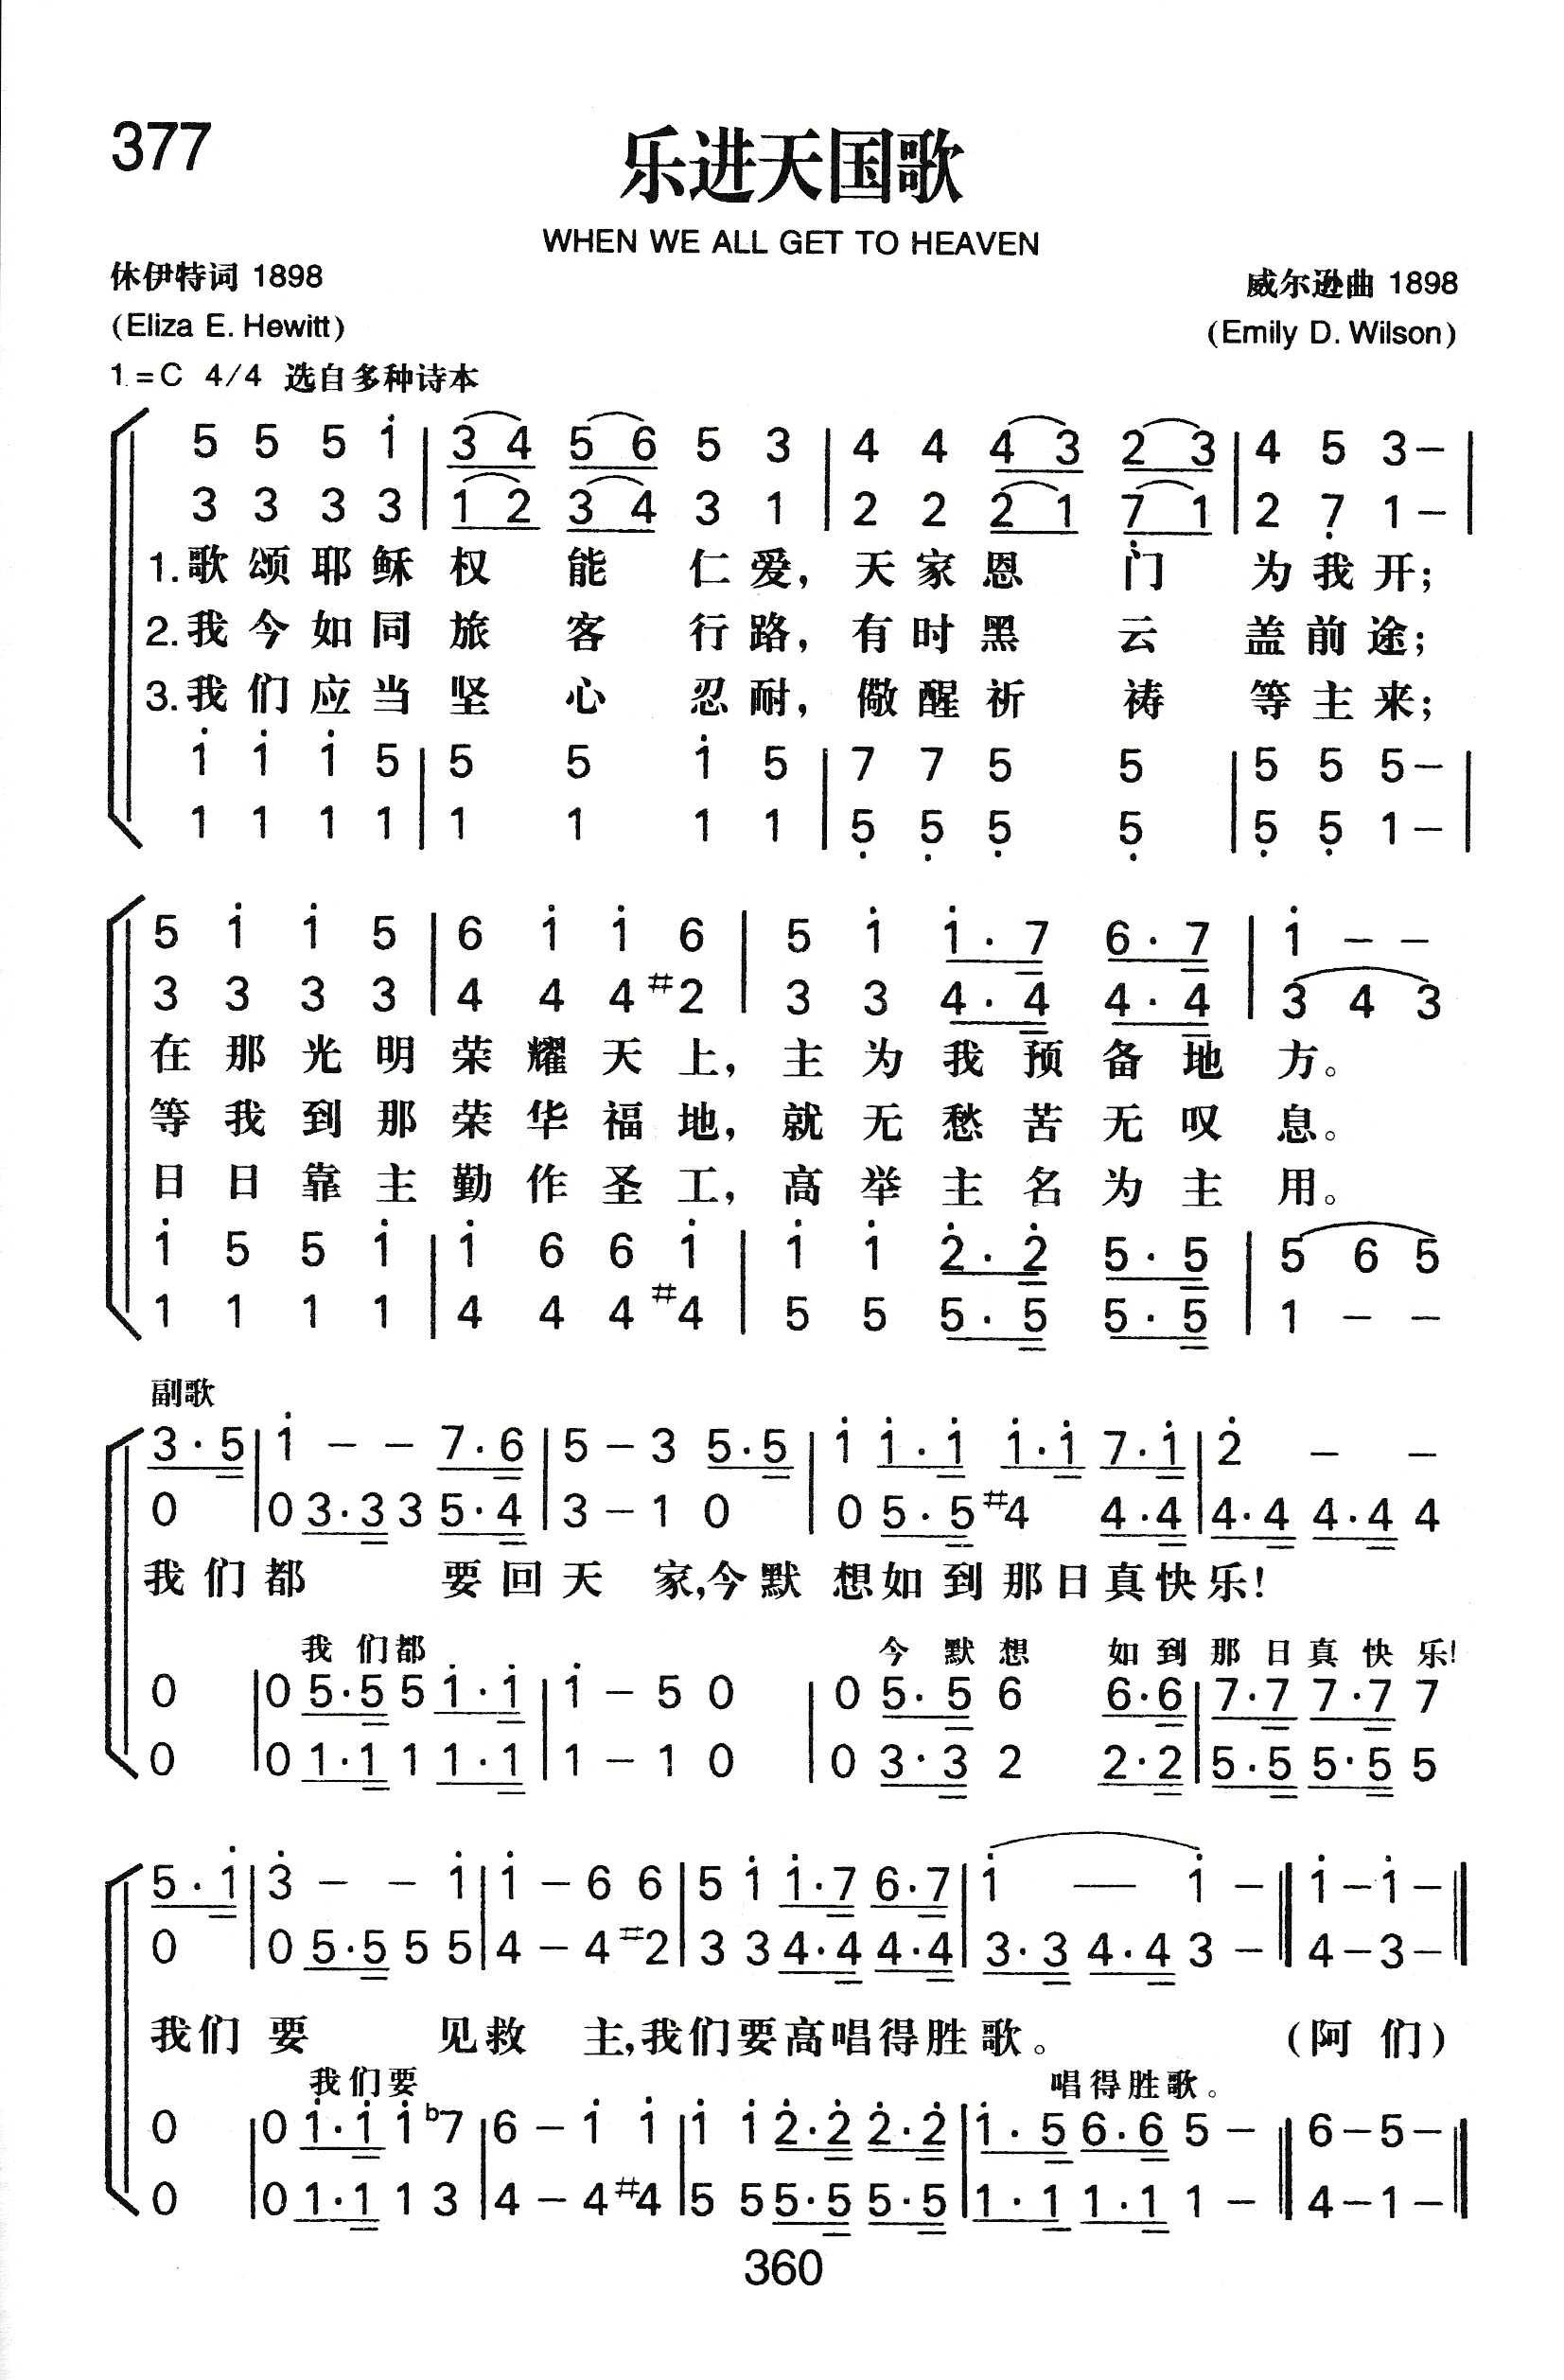 377
乐进天国歌
WHEN WE ALL GET TO HEAVEN
休伊特词 1898
威尔逊曲 1898
(Eliza E. Hewitt)
(Emily D. Wilson)
1=C 4/4 选自多种诗本
5 5 5 i̇ | 3 4 5 6 5 3 | 4 4 4 3 2 3 | 4 5 3 – |
3 3 3 3 | 1 2 3 4 3 1 | 2 2 2 1 7̣ 1 | 2 7̣ 1 – |
1.歌颂耶稣权能仁爱,天家恩门为我开;
2.我今如同旅客行路,有时黑云盖前途;
3.我们应当坚心忍耐,儆醒祈祷等主来;
1̇ 1̇ 1̇ 5 | 5 5 1̇ 5 | 7 7 5 5 | 5 5 5 – |
1 1 1 1 | 1 1 1 1 | 5̣ 5̣ 5̣ 5̣ | 5̣ 5̣ 1 – |
5 1̇ 1̇ 5 | 6 1̇ 1̇ 6 | 5 1̇ 1̇·7 6·7 | 1̇ – –
3 3 3 3 | 4 4 4 #2 | 3 3 4·4 4·4 | 3 4 3
在那光明荣耀天上,主为我预备地方。
等我到那荣华福地,就无愁苦无叹息。
日日靠主勤作圣工,高举主名为主用。
1̇ 5 5 1̇ | 1̇ 6 6 1̇ | 1̇ 1̇ 2̇·2̇ 5·5 | 5 6 5
1 1 1 1 | 4 4 4 #4 | 5 5 5·5 5·5 | 1 – –
副歌
3·5 | 1̇ – – 7·6 | 5 – 3 5·5 | 1̇ 1̇·1̇ 1̇·1̇ 7·1̇ | 2̇ – –
0 | 0 3·3 3 5·4 | 3 – 1 0 | 0 5·5 #4 4·4 | 4·4 4·4 4
我们都要回天家,今默想如到那日真快乐!
我们都 今默想 如到那日真快乐!
0 | 0 5·5 5 1̇·1̇ | 1̇ – 5 0 | 0 5·5 6 6·6 | 7·7 7·7 7
0 | 0 1·1 1 1·1 | 1 – 1 0 | 0 3·3 2 2·2 | 5·5 5·5 5
5·1̇ | 3̇ – – 1̇ | 1̇ – 6 6 | 5 1̇ 1̇·7 6·7 | 1̇ — 1̇ – ‖ 1̇ – 1̇ – ‖
0 | 0 5·5 5 5 | 4 – 4 #2 | 3 3 4·4 4·4 | 3·3 4·4 3 – ‖ 4 – 3 – ‖
我们要见救主,我们要高唱得胜歌。 (阿们)
我们要 唱得胜歌。
0 | 0 1̇·1̇ 1̇ b7 | 6 – 1̇ 1̇ | 1̇ 1̇ 2̇·2̇ 2̇·2̇ | 1̇·5 6·6 5 – ‖ 6 – 5 – ‖
0 | 0 1·1 1 3 | 4 – 4 #4 | 5 5 5·5 5·5 | 1·1 1·1 1 – ‖ 4 – 1 – ‖
360